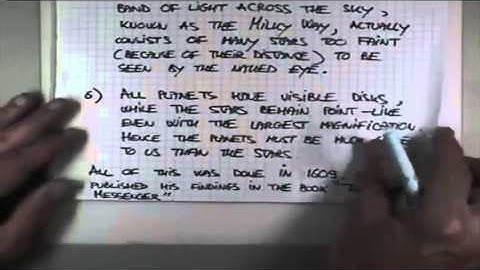 BAND OF LIGHT ACROSS THE SKY,
KNOWN AS THE MILKY WAY, ACTUALLY
CONSISTS OF MANY STARS TOO FAINT
(BECAUSE OF THEIR DISTANCE) TO BE
SEEN BY THE NAKED EYE.
6) ALL PLANETS HAVE VISIBLE DISKS,
WHILE THE STARS REMAIN POINT-LIKE
EVEN WITH THE LARGEST MAGNIFICATION.
HENCE THE PLANETS MUST BE
TO US THAN THE STARS
ALL OF THIS WAS DONE IN 1609,
PUBLISHED HIS FINDINGS IN THE BOOK
MESSENGER"